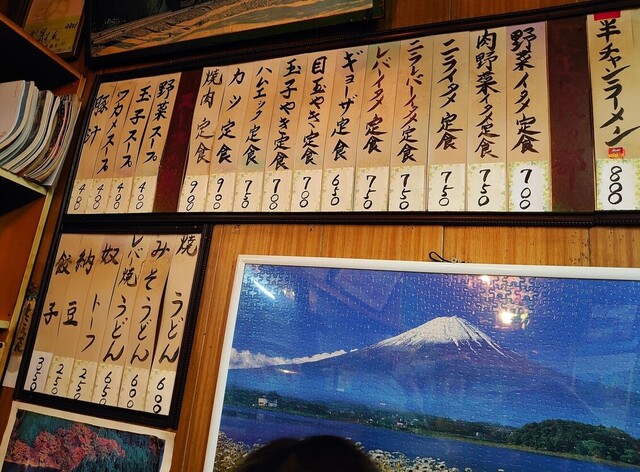 半チャンラーメン 800
野菜イタメ定食 700
肉野菜イタメ定食 750
ニライタメ定食 750
ニラレバーイタメ定食 750
レバーイタメ定食 750
ギョーザ定食 650
目玉やき定食 700
玉子やき定食 700
ハムエッグ定食 750
カツ定食 900
焼肉定食 900
野菜スープ
玉子スープ
ワカメスープ
豚汁
焼うどん 600
みそうどん 600
レバ焼うどん 650
奴トーフ 250
納豆 250
餃子 350